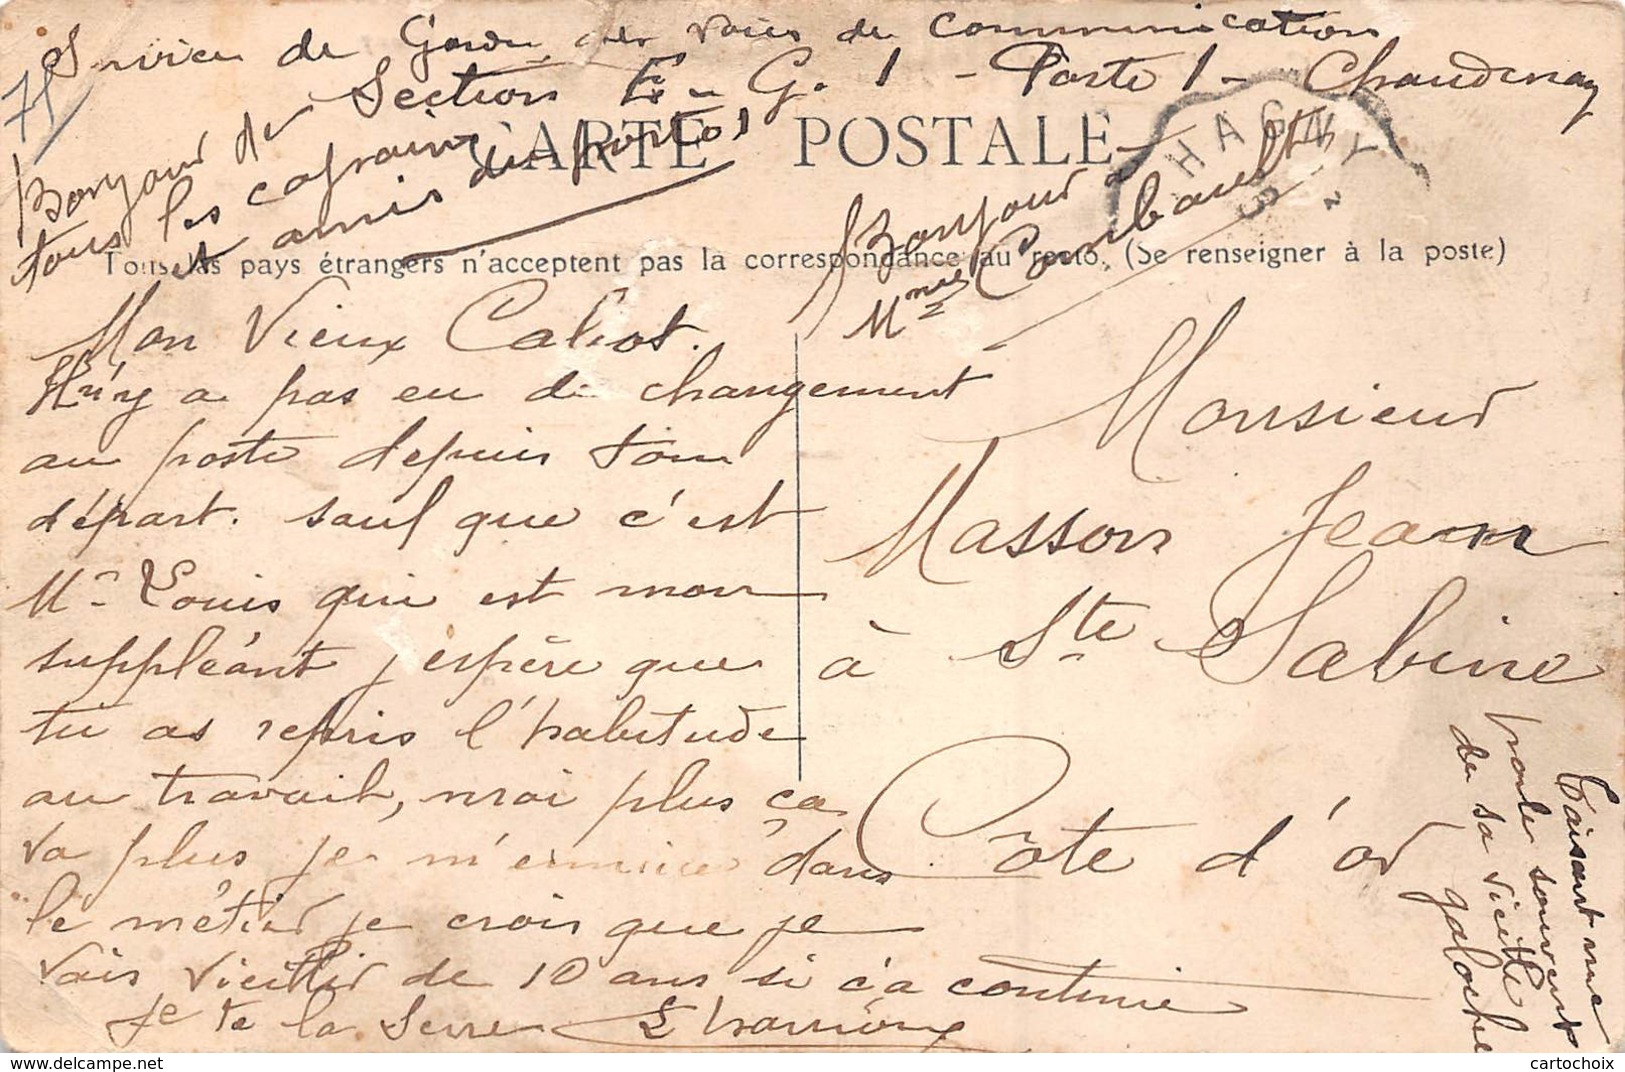 71
Service de Garde des voies de communication
Section E. G. 1 - Poste 1 - Chaudenay
Bonjour de
tous les copains
et amis du poste 1
CARTE POSTALE
CHAGNY
Bonjour à
Mmes Combault
Tous les pays étrangers n'acceptent pas la correspondance au recto. (Se renseigner à la poste)
Mon Vieux Cabot.
Il n'y a pas eu de changement
au poste depuis ton
départ. sauf que c'est
Mr Louis qui est mon
suppléant j'espère que
tu as repris l'habitude
au travail, moi plus ça
va plus je m'ennuie dans
le métier je crois que je
vais vieillir de 10 ans si ça continue
Je te la serre
Monsieur
Masson Jean
à Ste Sabine
Côte d'or
Taisant me
parle souvent
de sa vieille
galoche
cartochoix